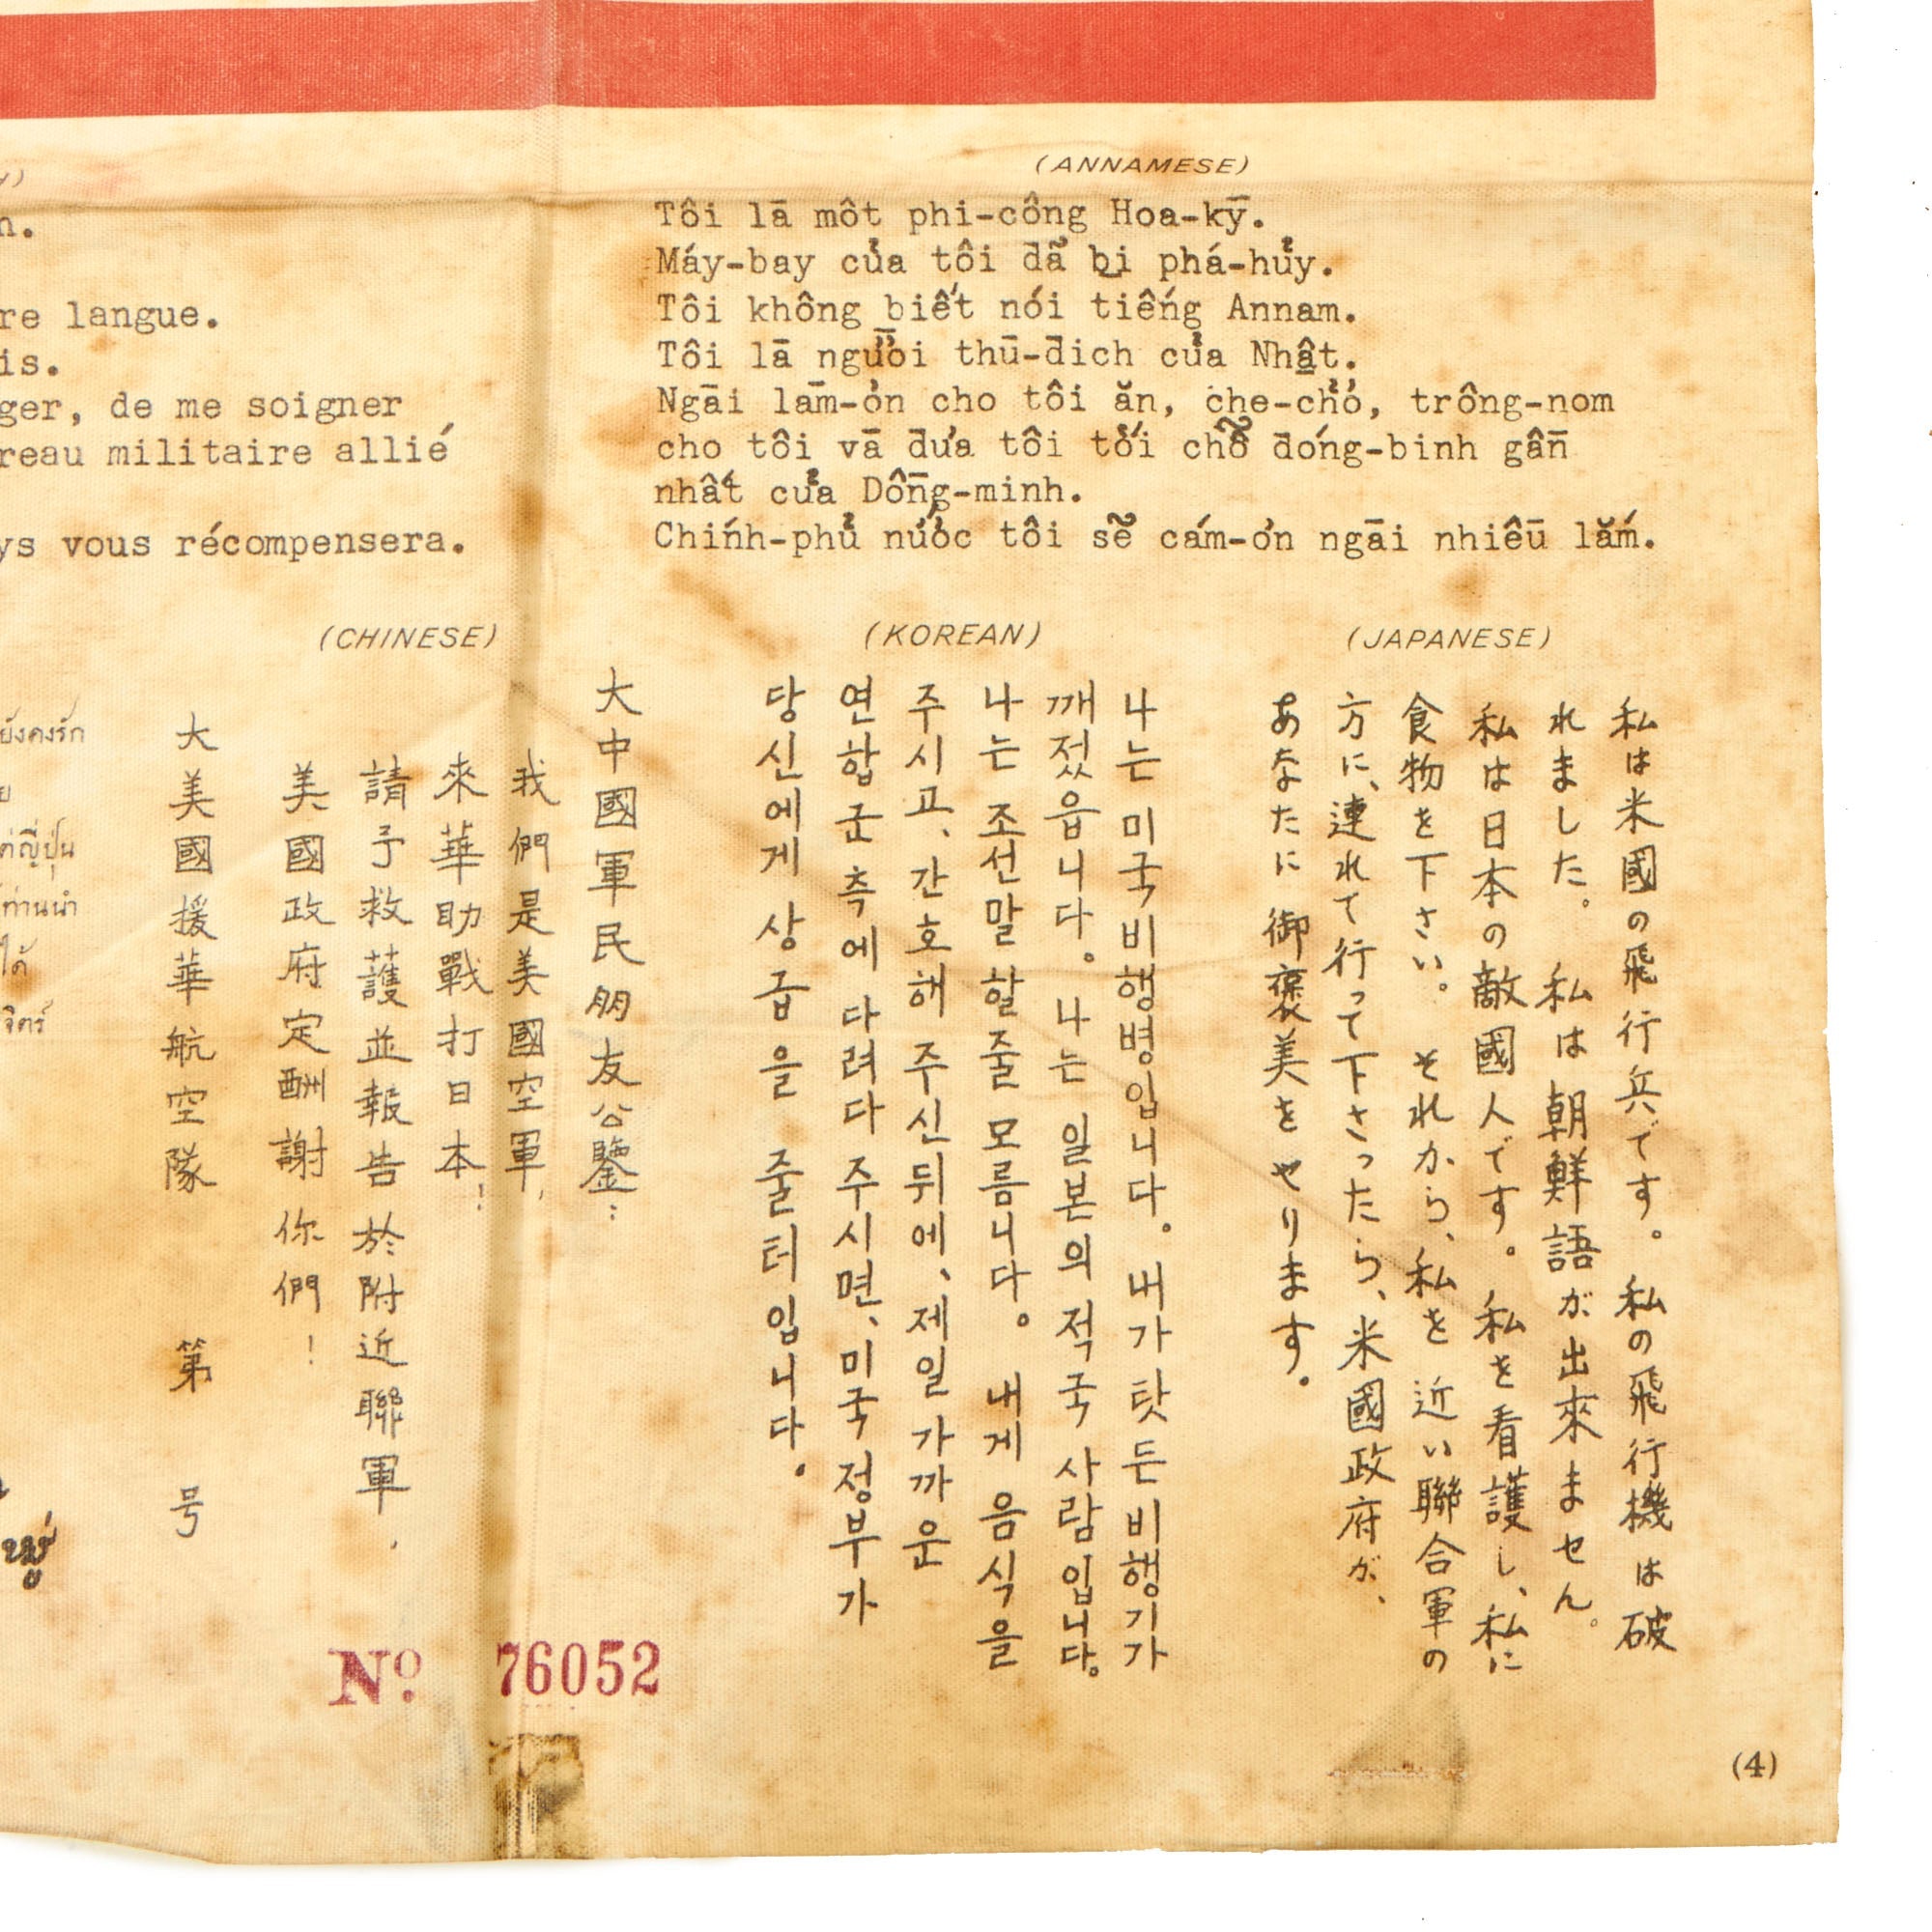 (ANNAMESE)
Tôi lā môt phi-công Hoa-kȳ.
Máy-bay của tôi đã bị phá-hủy.
Tôi không biết nói tiếng Annam.
Tôi lā người thū-đich của Nhật.
Ngāi lām-ỏn cho tôi ăn, che-chỏ, trông-nom
cho tôi vā đưa tôi tới chỗ đóng-binh gần
nhất của Dồng-minh.
Chính-phủ nước tôi sẽ cám-ơn ngāi nhiêū lắm.
n.
re langue.
is.
ger, de me soigner
reau militaire allié
ys vous récompensera.
(JAPANESE)
私は米國の飛行兵です。私の飛行機は破
れました。私は朝鮮語が出來ません。
私は日本の敵國人です。私を看護し、私に
食物を下さい。それから、私を近い聯合軍の
方に、連れて行って下さったら、米國政府が、
あなたに御褒美をやります。
(KOREAN)
나는 미국비행병입니다。내가 탓든비행기가
깨젔읍니다。나는 일본의 적국 사람입니다。
나는 조선말 할줄 모름니다。내게 음식을
주시고、간호해 주신뒤에、제일 가까운
연합군측에 다려다 주시면、미국정부가
당신에게 상급을 줄터입니다。
(CHINESE)
大中國軍民朋友公鑒：
我們是美國空軍，
來華助戰打日本！
請予救護並報告於附近聯軍，
美國政府定酬謝你們！
大美國援華航空隊 第 号
ยังคงรัก
ต่ญี่ปุ่น
ท่านนำ
ได้
จิตร์
Nº 76052
(4)